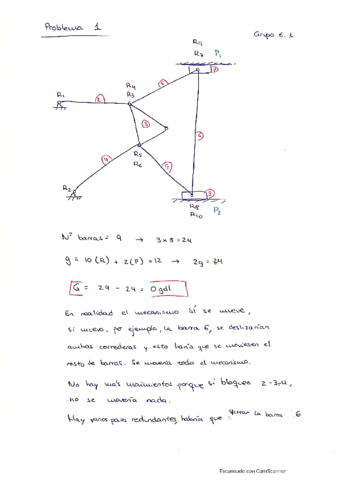 Problema 1
Grupo 6.1
R11
R7 P1
R1
2
R4
R3
5
3
6
4
R5
R6
R2
7
R8
R10 P2
Nº barras = 9 → 3x8=24
g = 10(R) + 2(P) = 12 → 2g = 24
G = 24 - 24 = 0 gdl
En realidad el mecanismo sí se mueve,
si muevo, por ejemplo, la barra 6, se deslizarían
ambas correderas y esto haría que se moviesen el
resto de barras. Se movería todo el mecanismo.
No hay más movimientos porque si bloqueo 2-3-4,
no se movería nada.
Hay varios pares redundantes, habría que quitar la barra 6
Escaneado con CamScanner